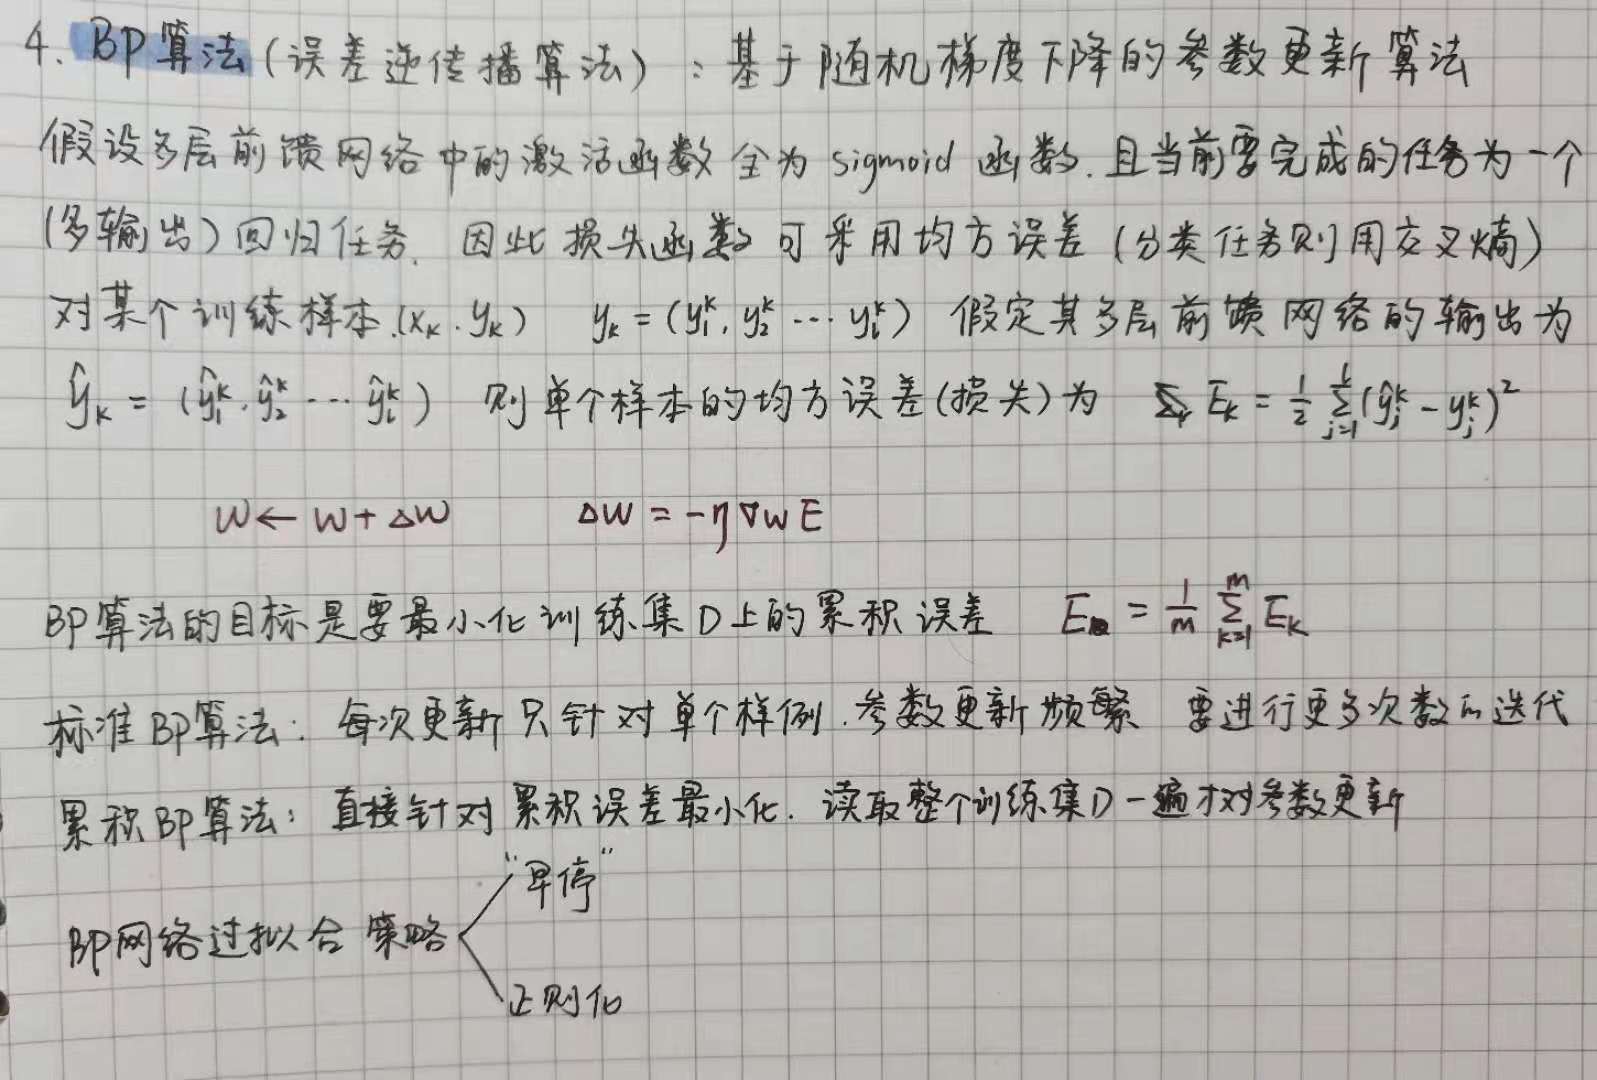 4. BP算法(误差逆传播算法):基于随机梯度下降的参数更新算法
假设多层前馈网络中的激活函数全为 sigmoid 函数.且当前要完成的任务为一个
(多输出)回归任务. 因此损失函数可采用均方误差(分类任务则用交叉熵)
对某个训练样本.(xₖ.yₖ) yₖ=(y₁ᵏ,y₂ᵏ…yₗᵏ) 假定其多层前馈网络的输出为
ŷₖ=(ŷ₁ᵏ.ŷ₂ᵏ…ŷₗᵏ) 则单个样本的均方误差(损失)为 Eₖ=1/2 Σⱼ₌₁ˡ(ŷⱼᵏ-yⱼᵏ)²
w←w+△w △w=-η∇wE
BP算法的目标是要最小化训练集D上的累积误差 E=1/m Σₖ₌₁ᵐ Eₖ
标准BP算法:每次更新只针对单个样例.参数更新频繁 要进行更多次数的迭代
累积BP算法:直接针对累积误差最小化.读取整个训练集D一遍才对参数更新
"早停"
BP网络过拟合策略
正则化